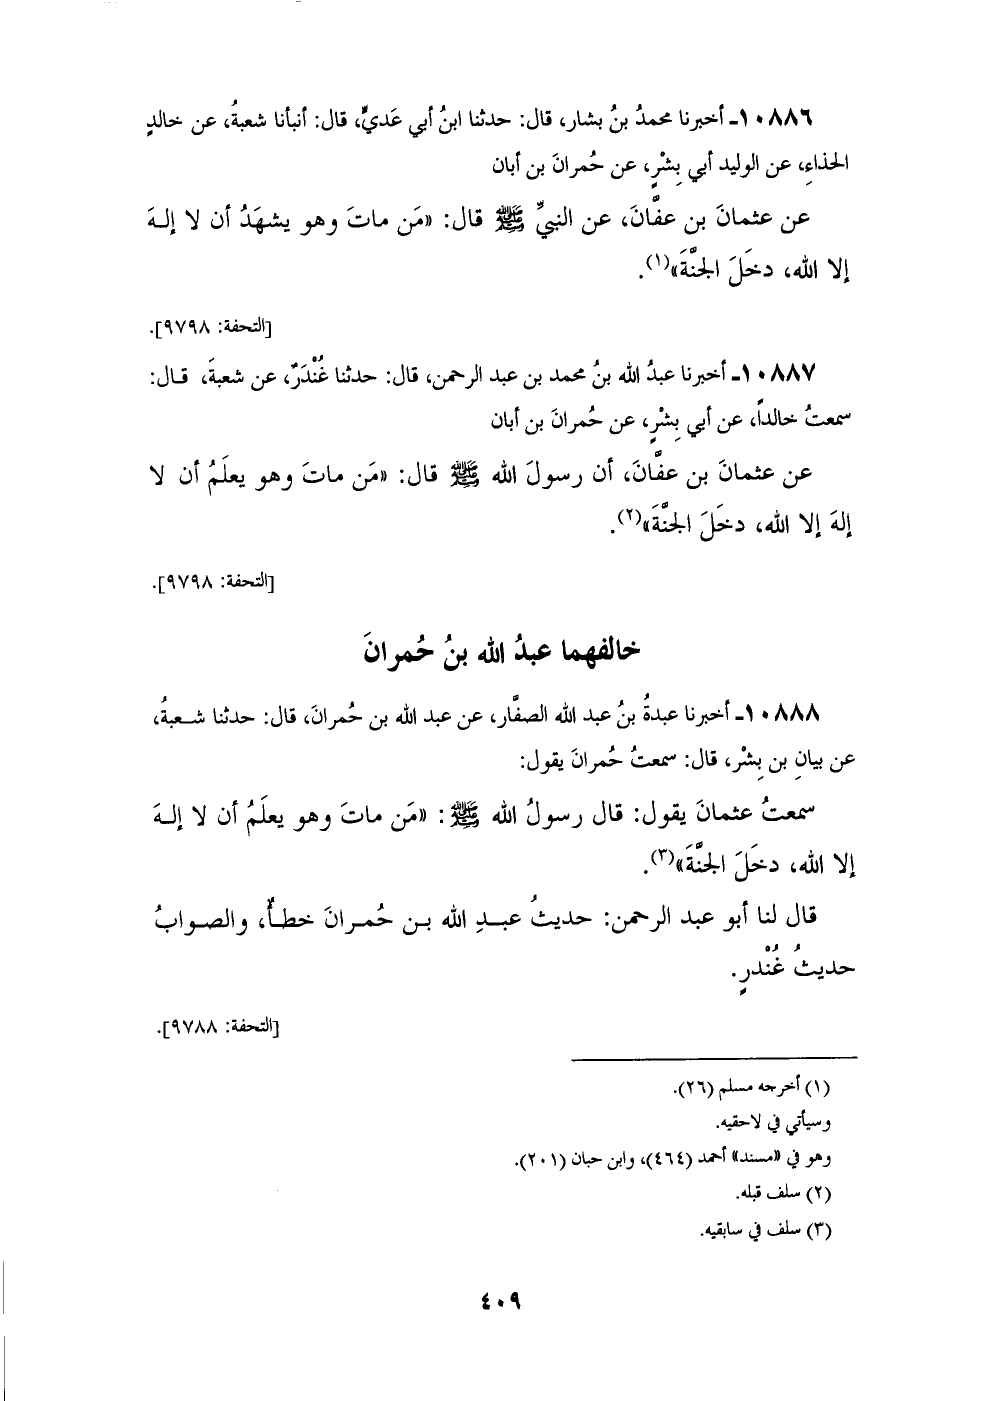 ١٠٨٨٦ـ أخبرنا محمدُ بنُ بشار، قال: حدثنا ابنُ أبي عَديٍّ، قال: أنبأنا شعبةُ، عن خالدٍ
الحذاءِ، عن الوليد أبي بِشْرٍ، عن حُمرانَ بن أبان
عن عثمانَ بن عفَّانَ، عن النبيِّ ﷺ قال: «مَن ماتَ وهو يشهَدُ أن لا إلـهَ
إلا الله، دخَلَ الجنَّةَ»(١).
[التحفة: ٩٧٩٨].
١٠٨٨٧ـ أخبرنا عبدُ الله بنُ محمد بن عبد الرحمن، قال: حدثنا غُنْدَرٌ، عن شعبةَ، قـال:
سمعتُ خالداً، عن أبي بِشْرٍ، عن حُمرانَ بن أبان
عن عثمانَ بن عفَّانَ، أن رسولَ الله ﷺ قال: «مَن ماتَ وهو يعلَمُ أن لا
إلهَ إلا الله، دخَلَ الجنَّةَ»(٢).
[التحفة: ٩٧٩٨].
خالفهما عبدُ الله بنُ حُمرانَ
١٠٨٨٨ـ أخبرنا عبدةُ بنُ عبد الله الصفَّار، عن عبد الله بن حُمرانَ، قال: حدثنا شـعبةُ،
عن بيانِ بن بِشْر، قال: سمعتُ حُمرانَ يقول:
سمعتُ عثمانَ يقول: قال رسولُ الله ﷺ: «مَن ماتَ وهو يعلَمُ أن لا إلـهَ
إلا الله، دخَلَ الجنَّةَ»(٣).
قال لنا أبو عبد الرحمن: حديثُ عبـدِ الله بـن حُمـرانَ خطـأٌ، والصـوابُ
حديثُ غُنْدرٍ.
[التحفة: ٩٧٨٨].
(١) أخرجه مسلم (٢٦).
وسيأتي في لاحقيه.
وهو في «مسند» أحمد (٤٦٤)، وابن حبان (٢٠١).
(٢) سلف قبله.
(٣) سلف في سابقيه.
٤٠٩